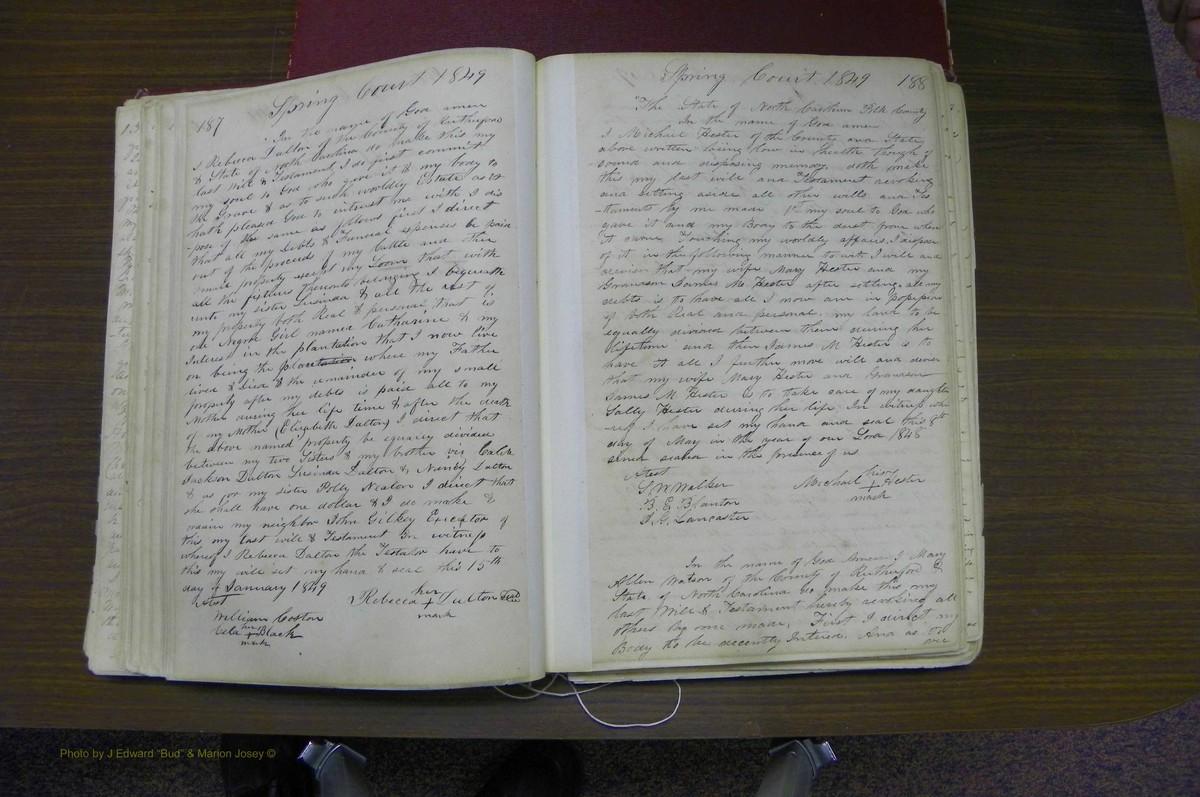 Spring Court 1849
187
In the name of God amen
I Rebecca Dalton of the County of Rutherford
& State of North Carolina do make this my
last Will & Testament I do first commit
my soul to God who gave it & my body to
the Grave & as to such worldly Estate as it
hath pleased God to intrust me with I dis
pose of the same as follows first I direct
that all my debts & Funeral expenses be paid
out of the proceeds of my Cattle and other
small property except my Loom that with
all the fixtures thereunto belonging I bequeath
unto my sister Lusinda & all the rest of
my property both Real & personal, that is
one Negroe Girl named Catharine & my
Interest in the plantation that I now live
on being the plantation where my Father
lived & died & the remainder of my small
property after my debts is paid all to my
Mother during her life time & after the death
of my Mother (Elizabeth Dalton) I direct that
the above named property be equaley divided
between my two Sisters & my brother viz
Jackson Dalton Lusinda Dalton & Nancy Dalton
& as for my sister Polly I direct that
she shall have one dollar & I do make &
my neighbor John Gilkey Executor of
this my last will & Testament In witness
whereof I Rebecca Dalton the Testator have to
this my will set my hand & seal this 15th
day of January 1849
Attest
her
Rebecca + Dalton Seal
mark
William Coston
her
+ Black
mark
Spring Court 1849 188
The State of North Carolina Polk County
In the name of God amen
I Michael Hester of the County and State
above written being low in health though of
sound and disposing memory doth make
this my last will and Testament revoking
and setting aside all other wills and Tes
-taments by me made 1st my soul to God who
gave it and my Body to the dust from whence
it came Touching my worldly affairs I dispose
of it in the following manner to wit I will and
that my wife Mary Hester and my
Grandson James M. Hester after settling all my
debts is to have all I now am in possession
of both Real and personal. my land to be
equally divided between them during her
lifetime and then James M Hester is to
have it all I further more will and
that my wife Mary Hester and Grandson
James M Hester is to take care of my daughter
Sally Hester during her life In witness whe
-reof I have set my hand and seal this 8th
day of May in the year of our Lord 1848
seald in the presence of us
Attest
S W Walker
B. E. Blanton
Lancaster
his
Michael + Hester
mark
In the name of God Amen I Mary
Allen Watson of the County of Rutherford &
State of North Carolina do make this my
last Will & Testament hereby revoking all
others by me made, First I direct my
Body to be decently Interred. And as to
over
Photo by J Edward "Bud" & Marion Josey ©